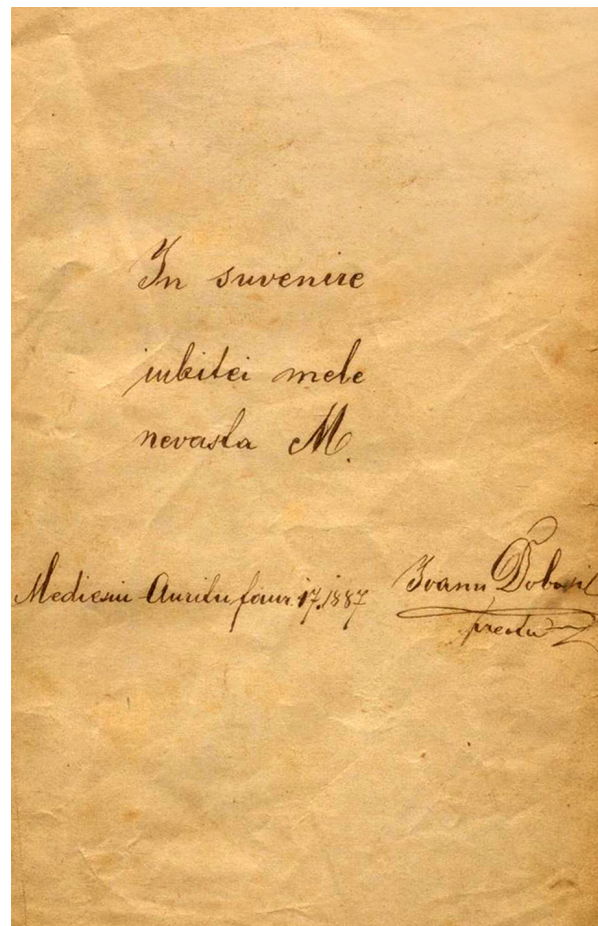 In suvenire
iubitei mele
nevasta M.
Mediesiu Auritu faur. 17. 1887 Ioanu Dobosi
preotu